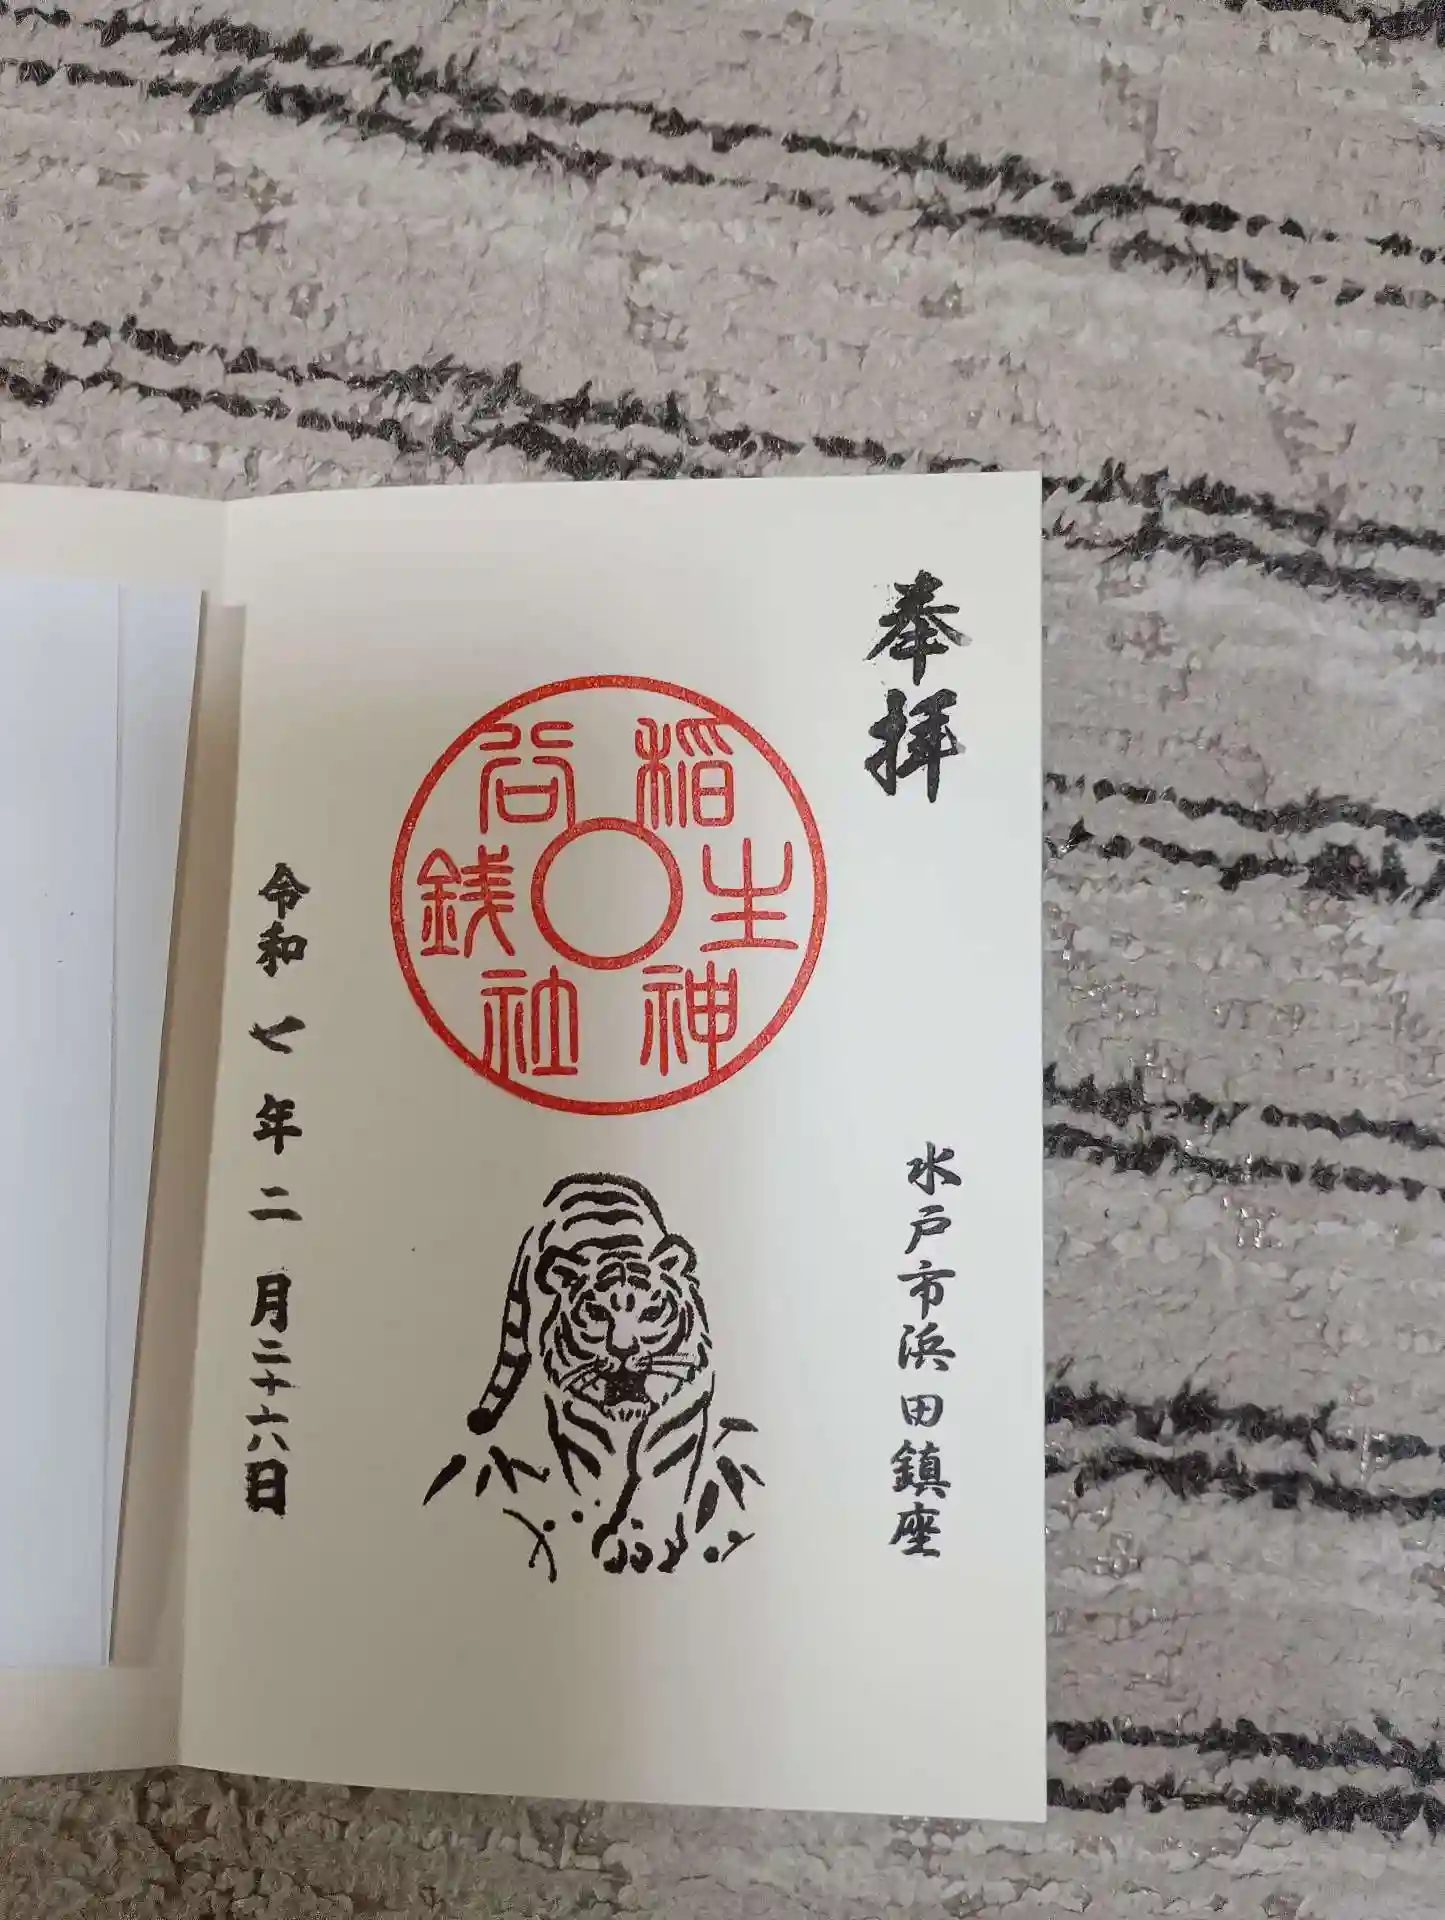 奉拝
水戸市浜田鎮座
稲生神
谷銭社
令和七年二月二十六日